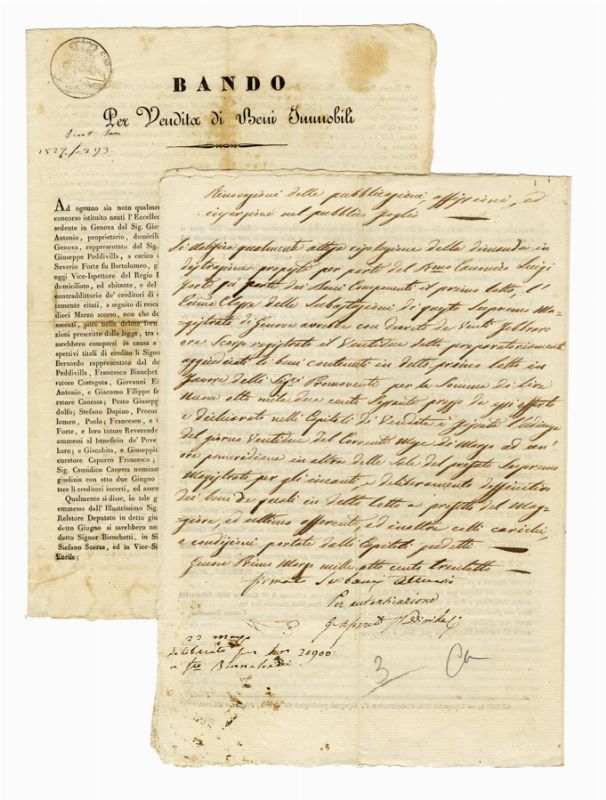 BANDO
Per Vendita di Beni Immobili
1827
293.
Ad ognuno sia noto qualmen
concorso istituito nanti l'Eccelle
sedente in Genova dal Sig. Gio
Antonio, proprietario, domicili
Genova, rappresentato dal Sig.
Giuseppe Peddivilla, a carico
Saverio Forte fu Bartolomeo, g
oggi Vice-Ispettore del Regio
domiciliato, ed abitante, e del
contradditorio de' creditori di
iamente citati, a seguito di resc
dieci Marzo scorso, non che de
nenti, pure nelle debite for
zioni prescritte dalla legge, tra
sarebbero comparsi in causa a
spettivi titoli di credito li Signo
Bernardo rappresentato dal de
Peddivilla, Francesco Bianchet
ratore Costaguta, Giovanni E
Antonio, e Giacomo Filippo f
ratore Canessa; Prato Giuseppe
dolfo; Stefano Dapino, Procus
lomeo, Paolo, Francesco, e C
Forte, e loro tutore Reverende
ammessi al beneficio de' Pove
baro; e Giacobita, e Giuseppi
curatore Caparro Francesco;
Sig. Causidico Canessa nomina
giudizio con atto due Giugno
tare li creditori incerti, ed assen
Qualmente si disse, in tale g
emmessa dall'Illustrissimo Sig.
Relatore Deputato in detto giu
detto Giugno si sarebbero no
detto Signor Bianchetti, in Si
Stefano Scorza, ed in Vice-Si
Eurile;
Rinovazioni delle pubblicazioni, affissioni, ed
inserzione nel pubblico foglio
Si notifica qualmente attesa
della dimanda in
proposta per parte del Rmo Canonico Luigi
Forte
parte dei Beni Componenti il primo lotto, l'
Classe delle Subastazioni di questo Supremo Ma-
gistrato di Genova avrebbe con decreto de Venti Febbraro
ora Scorso registrato il Ventidue detto preparatoriamente
aggiudicati li beni contenuti in detto primo lotto in
favore delli
per la Somma di Lire
nuove otto mila due cento Sessanta prezzo da essi offerto
e dichiarate nelli Capitoli di Vendita e fissata l'udienza
del giorno Ventidue del Corrente Mese di Marzo ad un'
ora pomeridiana in altra delle Sale del prefato Supremo
Magistrato per gli incanti, e deliberamento diffinitivo
dei beni de quali in detto lotto a profitto del Mag-
giore, ed ultimo offerente, ed inoltre colli carichi,
e condizioni portate dalli Capitoli
Genova Primo Marzo mille otto cento trentotto
firmato
Per autenticazione
22 Marzo
deliberato per
30900
a
3